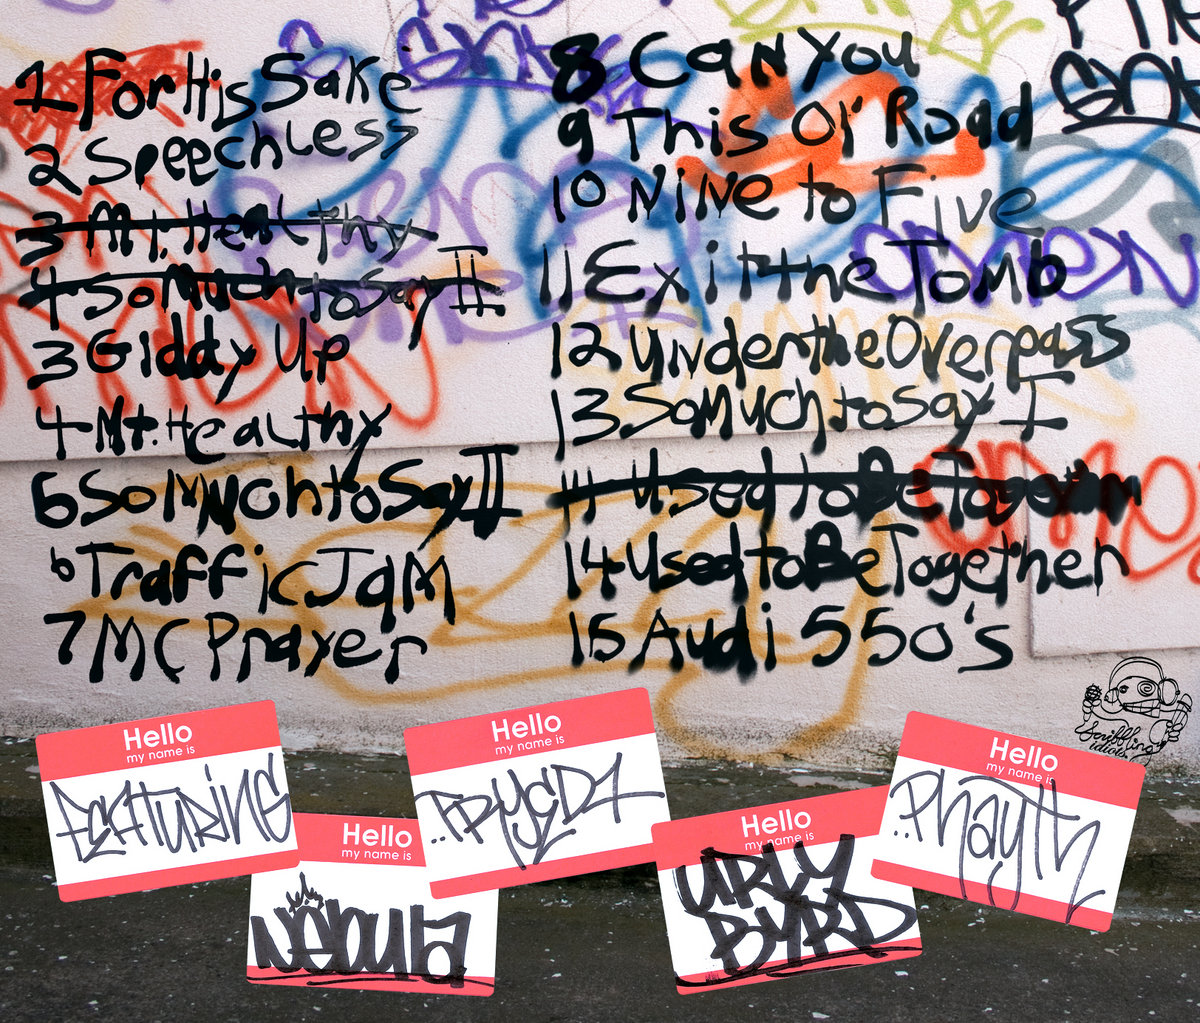 1 For His Sake
2 Speechless
3 Mt. Healthy
4 So Much to Say II
3 Giddy Up
4 Mt. Healthy
5 So Much to Say II
6 Traffic Jam
7 MC Prayer
8 Can You
9 This Ol' Road
10 Nine to Five
11 Exit the Tomb
12 Under the Overpass
13 So Much to Say I
14 Used to Be
14 Used to Be Together
15 Audi 550's
Scribbling
idiots
Hello
my name is
FEATURING
Hello
my name is
Nebula
Hello
my name is
Hello
my name is
URLY
BYRD
Hello
my name is